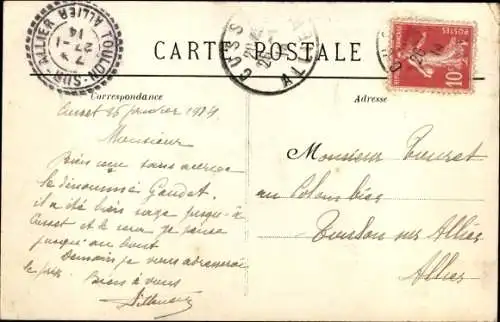 CARTE POSTALE
Correspondance
Adresse
TOULON-SUR-ALLIER
ALLIER
7
27-1
14
CUSSET
ALLIER
POSTES
10
Cusset 25 janvier 1914
Monsieur
le dénommé Gaudet.
il a été bien sage jusqu'à
Cusset et le sera je pense
jusqu'au bout
Demain je vous adresserai
le prix.
Bien à vous
Monsieur
au Colombier
Toulon sur Allier
Allier